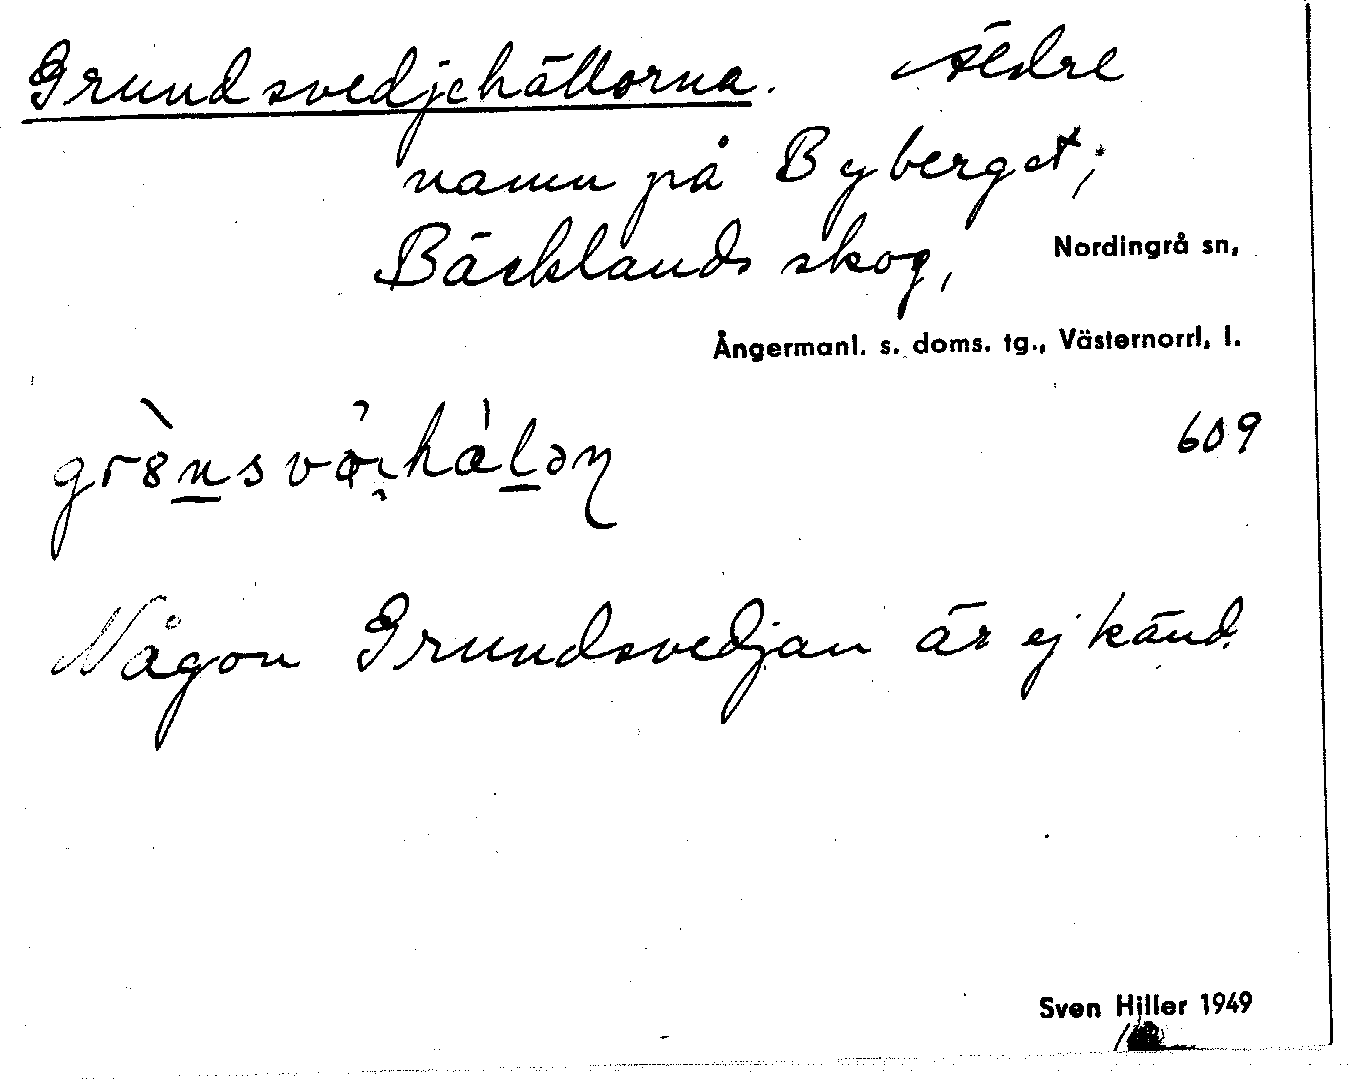 Grundsvedjehällorna. Äldre
namn på Byberget;
Bäcklands skog, Nordingrå sn,
Ångermanl. s. doms. tg., Västernorrl. l.
609
Någon Grundsvedjan är ej känd.
Sven Hiller 1949